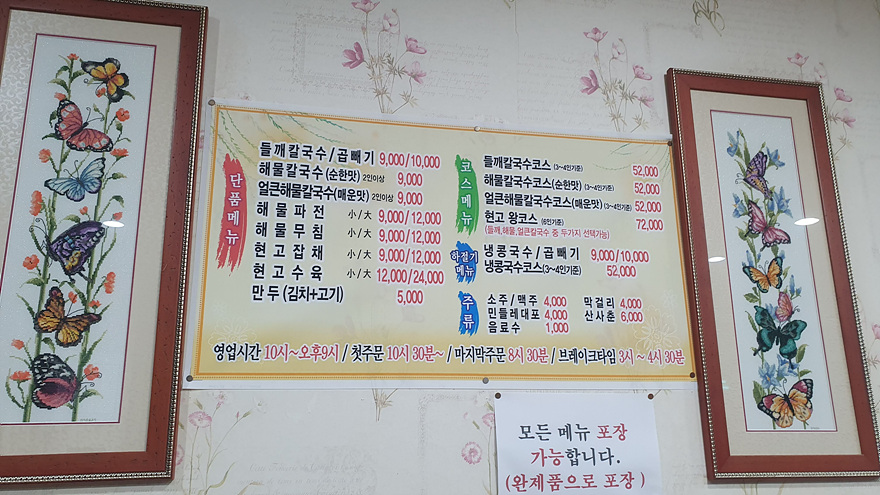 단품메뉴
들깨칼국수/곱빼기 9,000/10,000
해물칼국수(순한맛) 2인이상 9,000
얼큰해물칼국수(매운맛) 2인이상 9,000
해물파전 小/大 9,000/12,000
해물무침 小/大 9,000/12,000
현고잡채 小/大 9,000/12,000
현고수육 小/大 12,000/24,000
만두(김치+고기) 5,000
코스메뉴
들깨칼국수코스(3~4인기준) 52,000
해물칼국수코스(순한맛)(3~4인기준) 52,000
얼큰해물칼국수코스(매운맛)(3~4인기준) 52,000
현고 왕코스 (6인기준) 72,000
(들깨,해물,얼큰칼국수 중 두가지 선택가능)
하절기메뉴
냉콩국수/곱빼기 9,000/10,000
냉콩국수코스(3~4인기준) 52,000
주류
소주/맥주 4,000 막걸리 4,000
민들레대포 4,000 산사춘 6,000
음료수 1,000
영업시간 10시~오후9시 / 첫주문 10시 30분~ / 마지막주문 8시 30분 / 브레이크타임 3시 ~ 4시 30분
모든 메뉴 포장
가능합니다.
(완제품으로 포장)